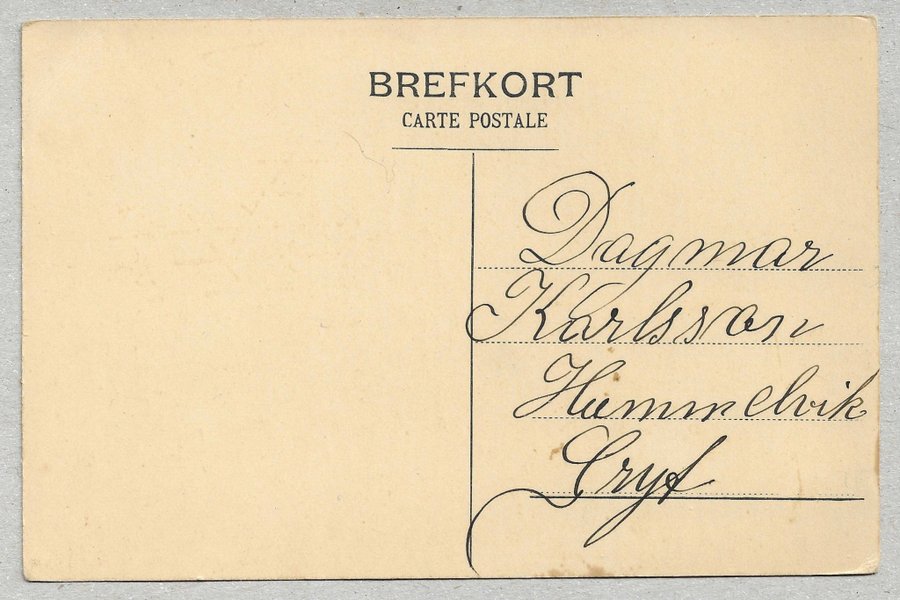 BREFKORT
CARTE POSTALE
Dagmar
Karlsson
Hummelvik
Gryt